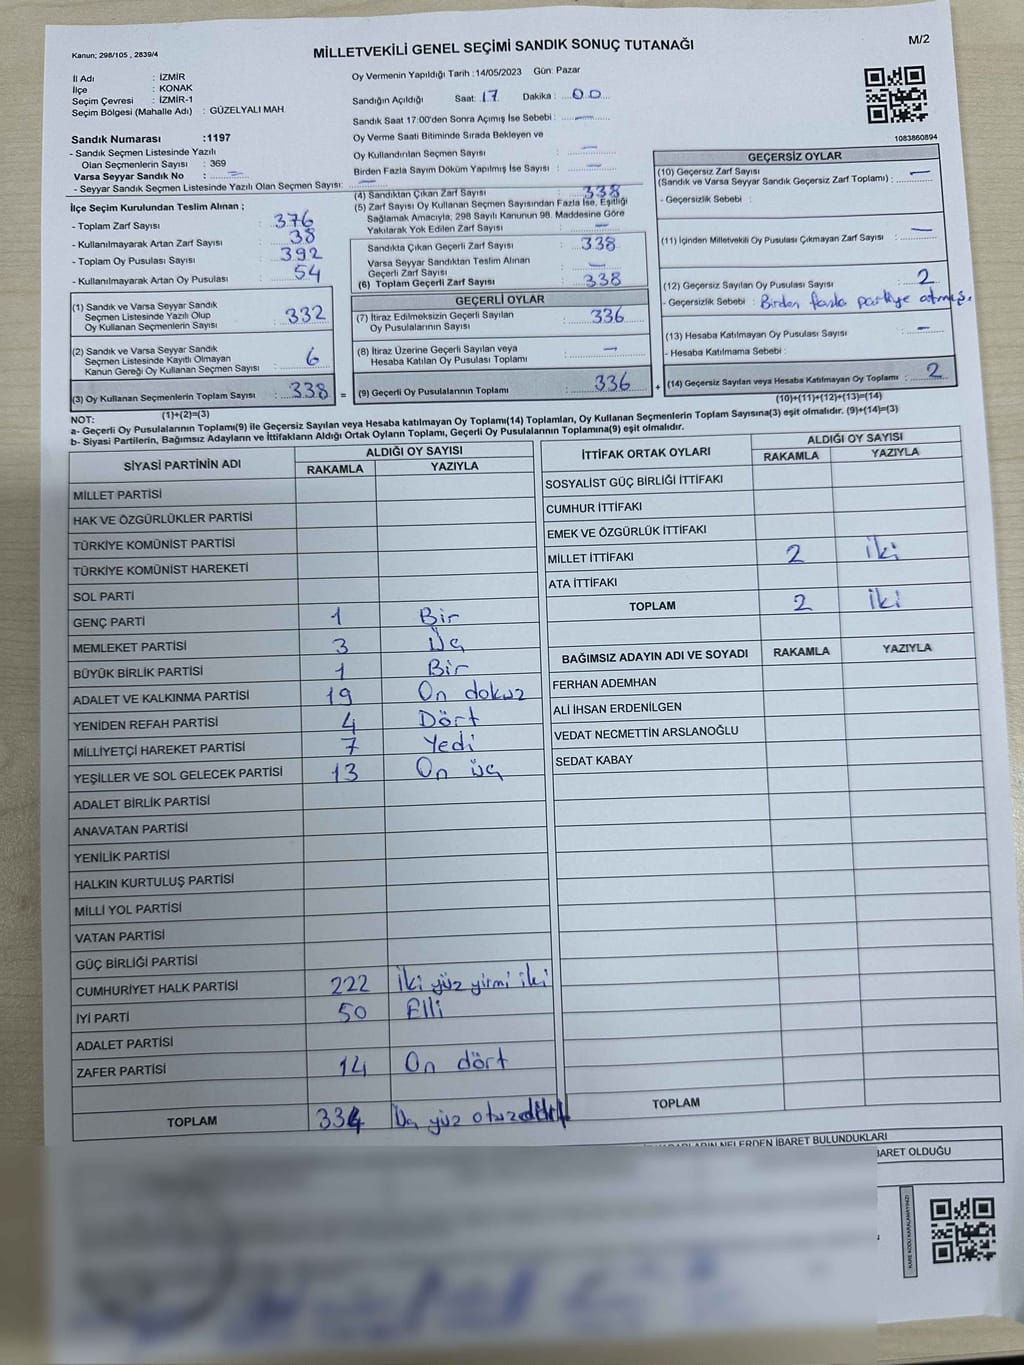 Kanun; 298/105 , 2839/4
MİLLETVEKİLİ GENEL SEÇİMİ SANDIK SONUÇ TUTANAĞI
M/2
İl Adı : İZMİR
İlçe : KONAK
Seçim Çevresi : İZMİR-1
Seçim Bölgesi (Mahalle Adı) : GÜZELYALI MAH
Sandık Numarası :1197
- Sandık Seçmen Listesinde Yazılı
Olan Seçmenlerin Sayısı : 369
Varsa Seyyar Sandık No : —
- Seyyar Sandık Seçmen Listesinde Yazılı Olan Seçmen Sayısı: —
Oy Vermenin Yapıldığı Tarih :14/05/2023 Gün: Pazar
Sandığın Açıldığı Saat: 17 Dakika : 00
Sandık Saat 17:00'den Sonra Açımış İse Sebebi : —
Oy Verme Saati Bitiminde Sırada Bekleyen ve
Oy Kullandırılan Seçmen Sayısı : —
Birden Fazla Sayım Döküm Yapılmış İse Sayısı : —
1083860894
İlçe Seçim Kurulundan Teslim Alınan ;
- Toplam Zarf Sayısı : 376
- Kullanılmayarak Artan Zarf Sayısı : 38
- Toplam Oy Pusulası Sayısı : 392
- Kullanılmayarak Artan Oy Pusulası : 54
(1) Sandık ve Varsa Seyyar Sandık
Seçmen Listesinde Yazılı Olup
Oy Kullanan Seçmenlerin Sayısı : 332
(2) Sandık ve Varsa Seyyar Sandık
Seçmen Listesinde Kayıtlı Olmayan
Kanun Gereği Oy Kullanan Seçmen Sayısı : 6
(3) Oy Kullanan Seçmenlerin Toplam Sayısı : 338 =
(1)+(2)=(3)
(4) Sandıktan Çıkan Zarf Sayısı : 338
(5) Zarf Sayısı Oy Kullanan Seçmen Sayısından Fazla İse, Eşitliği
Sağlamak Amacıyla, 298 Sayılı Kanunun 98. Maddesine Göre
Yakılarak Yok Edilen Zarf Sayısı : —
Sandıkta Çıkan Geçerli Zarf Sayısı : 338
Varsa Seyyar Sandıktan Teslim Alınan
Geçerli Zarf Sayısı : —
(6) Toplam Geçerli Zarf Sayısı : 338
GEÇERLİ OYLAR
(7) İtiraz Edilmeksizin Geçerli Sayılan
Oy Pusulalarının Sayısı : 336
(8) İtiraz Üzerine Geçerli Sayılan veya
Hesaba Katılan Oy Pusulası Toplamı : —
(9) Geçerli Oy Pusulalarının Toplamı : 336 +
GEÇERSİZ OYLAR
(10) Geçersiz Zarf Sayısı
(Sandık ve Varsa Seyyar Sandık Geçersiz Zarf Toplamı) : —
- Geçersizlik Sebebi :
(11) İçinden Milletvekili Oy Pusulası Çıkmayan Zarf Sayısı : —
(12) Geçersiz Sayılan Oy Pusulası Sayısı : 2
- Geçersizlik Sebebi : Birden fazla partiye atmış.
(13) Hesaba Katılmayan Oy Pusulası Sayısı : —
- Hesaba Katılmama Sebebi :
(14) Geçersiz Sayılan veya Hesaba Katılmayan Oy Toplamı : 2
(10)+(11)+(12)+(13)=(14)
NOT:
a- Geçerli Oy Pusulalarının Toplamı(9) ile Geçersiz Sayılan veya Hesaba katılmayan Oy Toplamı(14) Toplamları, Oy Kullanan Seçmenlerin Toplam Sayısına(3) eşit olmalıdır. (9)+(14)=(3)
b- Siyasi Partilerin, Bağımsız Adayların ve İttifakların Aldığı Ortak Oyların Toplamı, Geçerli Oy Pusulalarının Toplamına(9) eşit olmalıdır.
SİYASİ PARTİNİN ADI ALDIĞI OY SAYISI
RAKAMLA YAZIYLA
MİLLET PARTİSİ
HAK VE ÖZGÜRLÜKLER PARTİSİ
TÜRKİYE KOMÜNİST PARTİSİ
TÜRKİYE KOMÜNİST HAREKETİ
SOL PARTİ
GENÇ PARTİ 1 Bir
MEMLEKET PARTİSİ 3 Üç
BÜYÜK BİRLİK PARTİSİ 1 Bir
ADALET VE KALKINMA PARTİSİ 19 On dokuz
YENİDEN REFAH PARTİSİ 4 Dört
MİLLİYETÇİ HAREKET PARTİSİ 7 Yedi
YEŞİLLER VE SOL GELECEK PARTİSİ 13 On üç
ADALET BİRLİK PARTİSİ
ANAVATAN PARTİSİ
YENİLİK PARTİSİ
HALKIN KURTULUŞ PARTİSİ
MİLLİ YOL PARTİSİ
VATAN PARTİSİ
GÜÇ BİRLİĞİ PARTİSİ
CUMHURİYET HALK PARTİSİ 222 İki yüz yirmi iki
İYİ PARTİ 50 Elli
ADALET PARTİSİ
ZAFER PARTİSİ 14 On dört
TOPLAM 334 Üç yüz otuz
İTTİFAK ORTAK OYLARI ALDIĞI OY SAYISI
RAKAMLA YAZIYLA
SOSYALİST GÜÇ BİRLİĞİ İTTİFAKI
CUMHUR İTTİFAKI
EMEK VE ÖZGÜRLÜK İTTİFAKI
MİLLET İTTİFAKI 2 İki
ATA İTTİFAKI
TOPLAM 2 İki
BAĞIMSIZ ADAYIN ADI VE SOYADI RAKAMLA YAZIYLA
FERHAN ADEMHAN
ALİ İHSAN ERDENİLGEN
VEDAT NECMETTİN ARSLANOĞLU
SEDAT KABAY
TOPLAM
NELERDEN İBARET BULUNDUKLARI
OLDUĞU